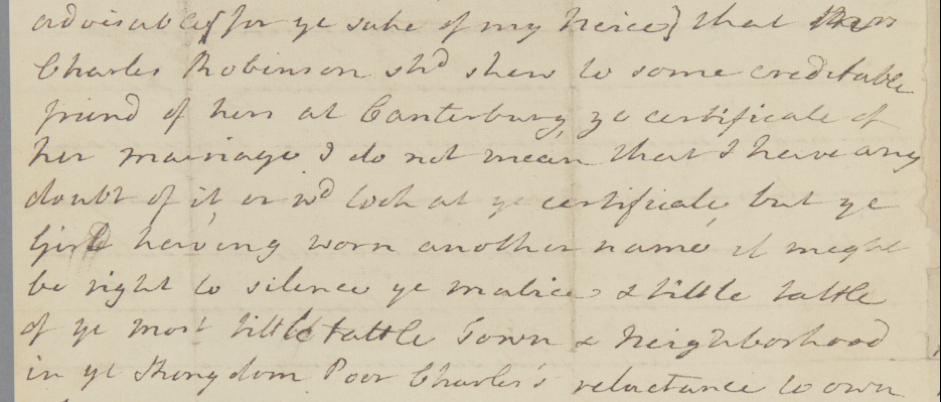 advisable (for ye sake of my Neice) that Mrs
Charles Robinson shd shew to some creditable
friend of hers at Canterbury ye certificate of
her marriage I do not mean that I have any
doubt of it, or wd look at ye certificate, but ye
Girl having worn another name, it might
be right to silence ye malice & tittle tattle
of ye most tittle tattle Town & Neighborhood
in ye Kingdom. Poor Charles's reluctance to own